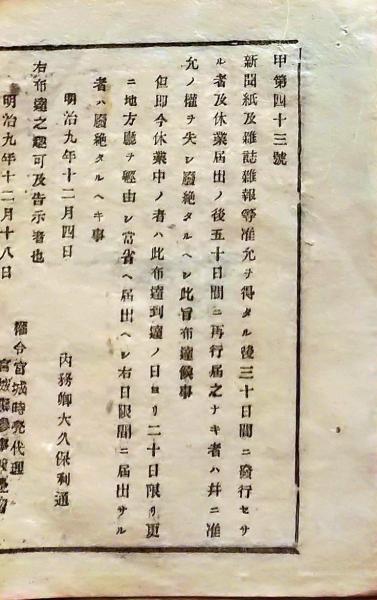 甲第四十三號
新聞紙及雜誌雜報等准允ヲ得タル後三十日間ニ發行セサ
ル者及休業屆出ノ後五十日間ニ再行屆之ナキ者ハ幷ニ准
允ノ權ヲ失シ廢絶タルヘシ此旨布達候事
但即今休業中ノ者ハ此布達到達ノ日ヨリ二十日限リ更
ニ地方廳ヲ經由シ當省ヘ屆出ヘシ右日限間ニ屆出サル
者ハ廢絶タルヘキ事
明治九年十二月四日
内務卿大久保利通
右布達之趣可及告示者也
明治九年十二月十八日
權令宮城時亮代理
宮城縣參事